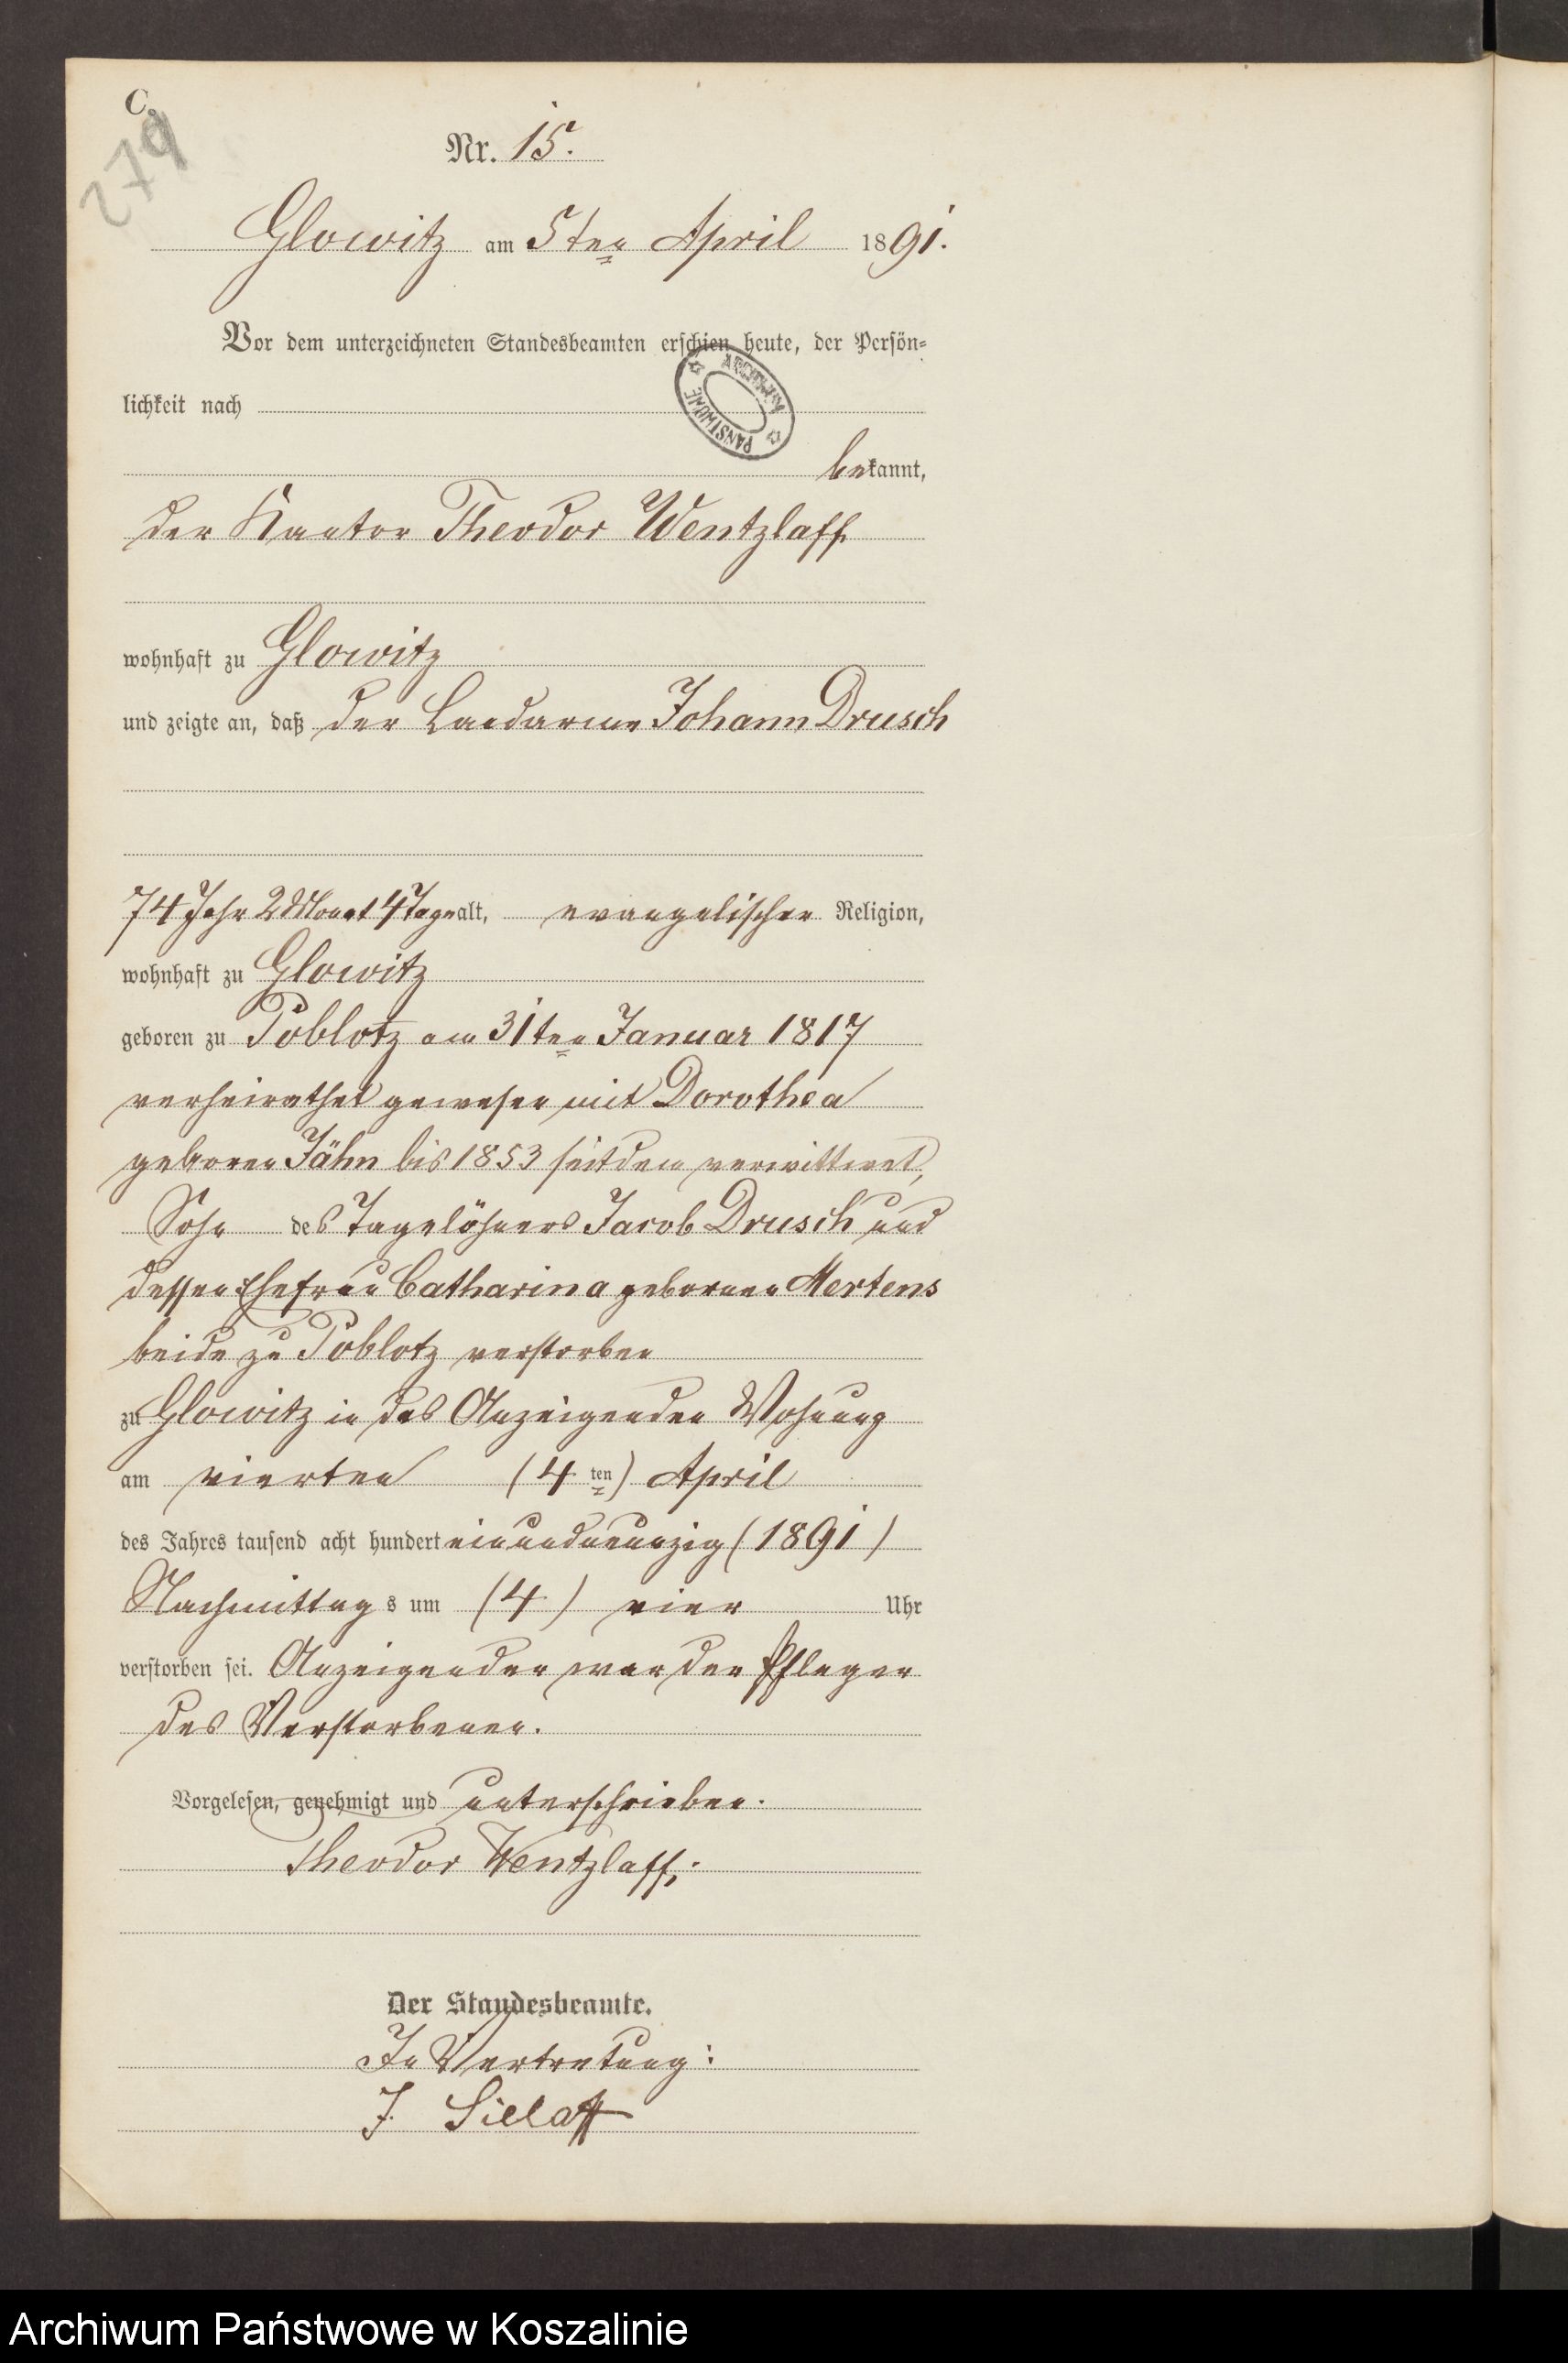 C.
279
Nr. 15.
Glowitz am 5ten April 1891.
Vor dem unterzeichneten Standesbeamten erschien heute, der Persön-
lichkeit nach
bekannt,
der Kantor Theodor Wentzlaff
wohnhaft zu Glowitz
und zeigte an, daß der Landarme Johann Drusch
74 Jahr 2 Monat 4 Tage alt, evangelischer Religion,
wohnhaft zu Glowitz
geboren zu Poblotz am 31ten Januar 1817
verheirathet gewesen mit Dorothea
geboren Jähn bis 1853 seitdem verwittwet,
Sohn des Tagelöhners Jacob Drusch und
dessen Ehefrau Catharina geborenen Mertens
beide zu Poblotz verstorben
zu Glowitz in des Anzeigenden Wohnung
am vierten (4ten) April
des Jahres tausend acht hundert einundneunzig (1891)
Nachmittags um (4) vier Uhr
verstorben sei. Anzeigender war der Pfleger
des Verstorbenen.
Vorgelesen, genehmigt und unterschrieben.
Theodor Wentzlaff.
Der Standesbeamte.
In Vertretung:
J. Sielaff
ARCHIWUM PAŃSTWOWE
Archiwum Państwowe w Koszalinie